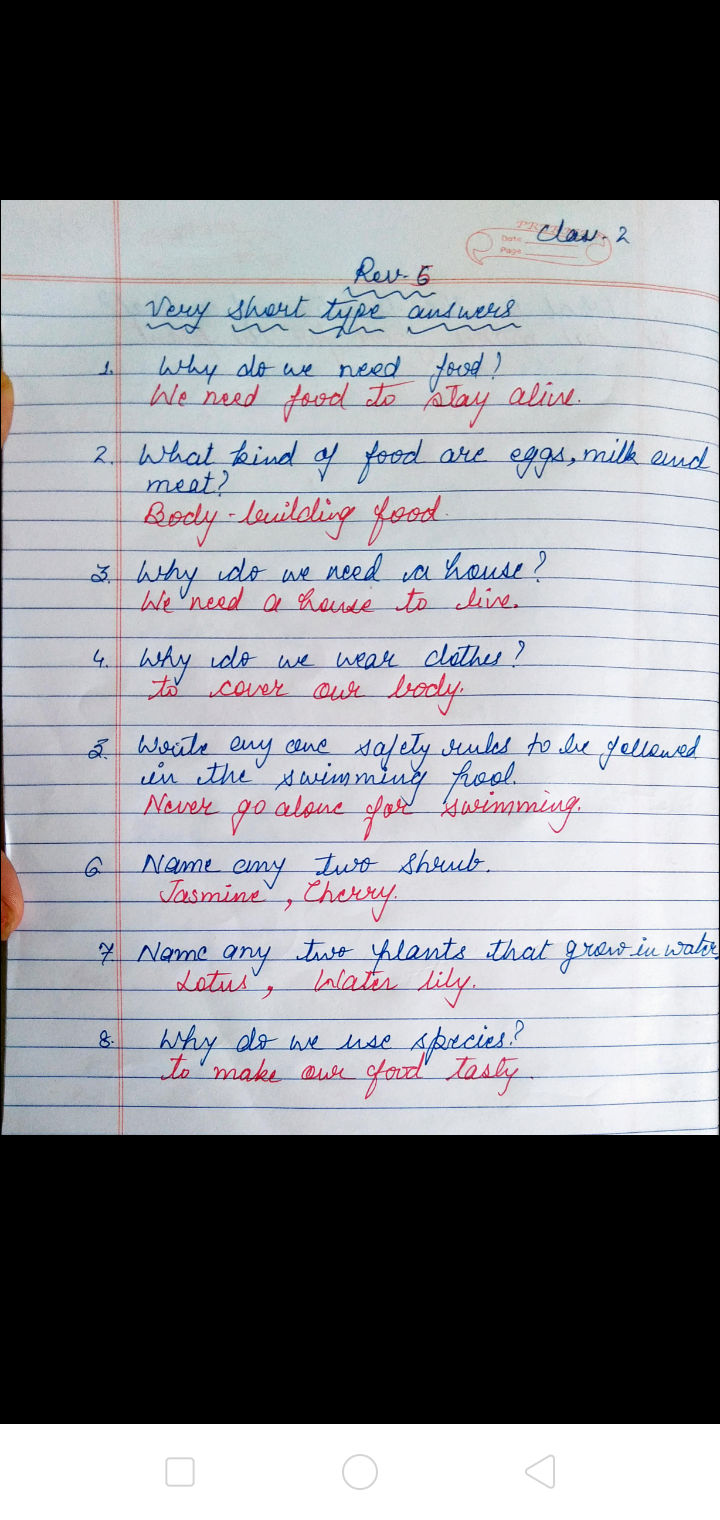 PREMIUM
Date
Page
Class-2
Rev-5
Very short type answers
1. Why do we need food?
We need food to stay alive.
2. What kind of food are eggs, milk and
meat?
Body-building food.
3. Why do we need a house?
We need a house to live.
4. Why do we wear clothes?
to cover our body.
5. Write any one safety rules to be followed
in the swimming pool.
Never go alone for swimming.
6 Name any two shrub.
Jasmine, Cherry.
7 Name any two plants that grow in water.
Lotus, Water lily.
8. Why do we use species?
to make our food tasty.